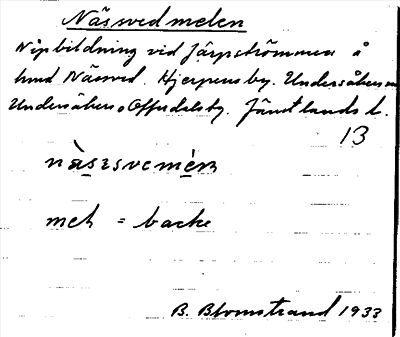 Näsved melen
Nipbildning vid Järpströmmen å
hmd Näsved. Hjerpens by. Undersåkers sn
Undersåkers o Offerdals tg. Jämtlands l.
13
nàsɪsvemèn
meh = backe
B. Blomstrand 1933